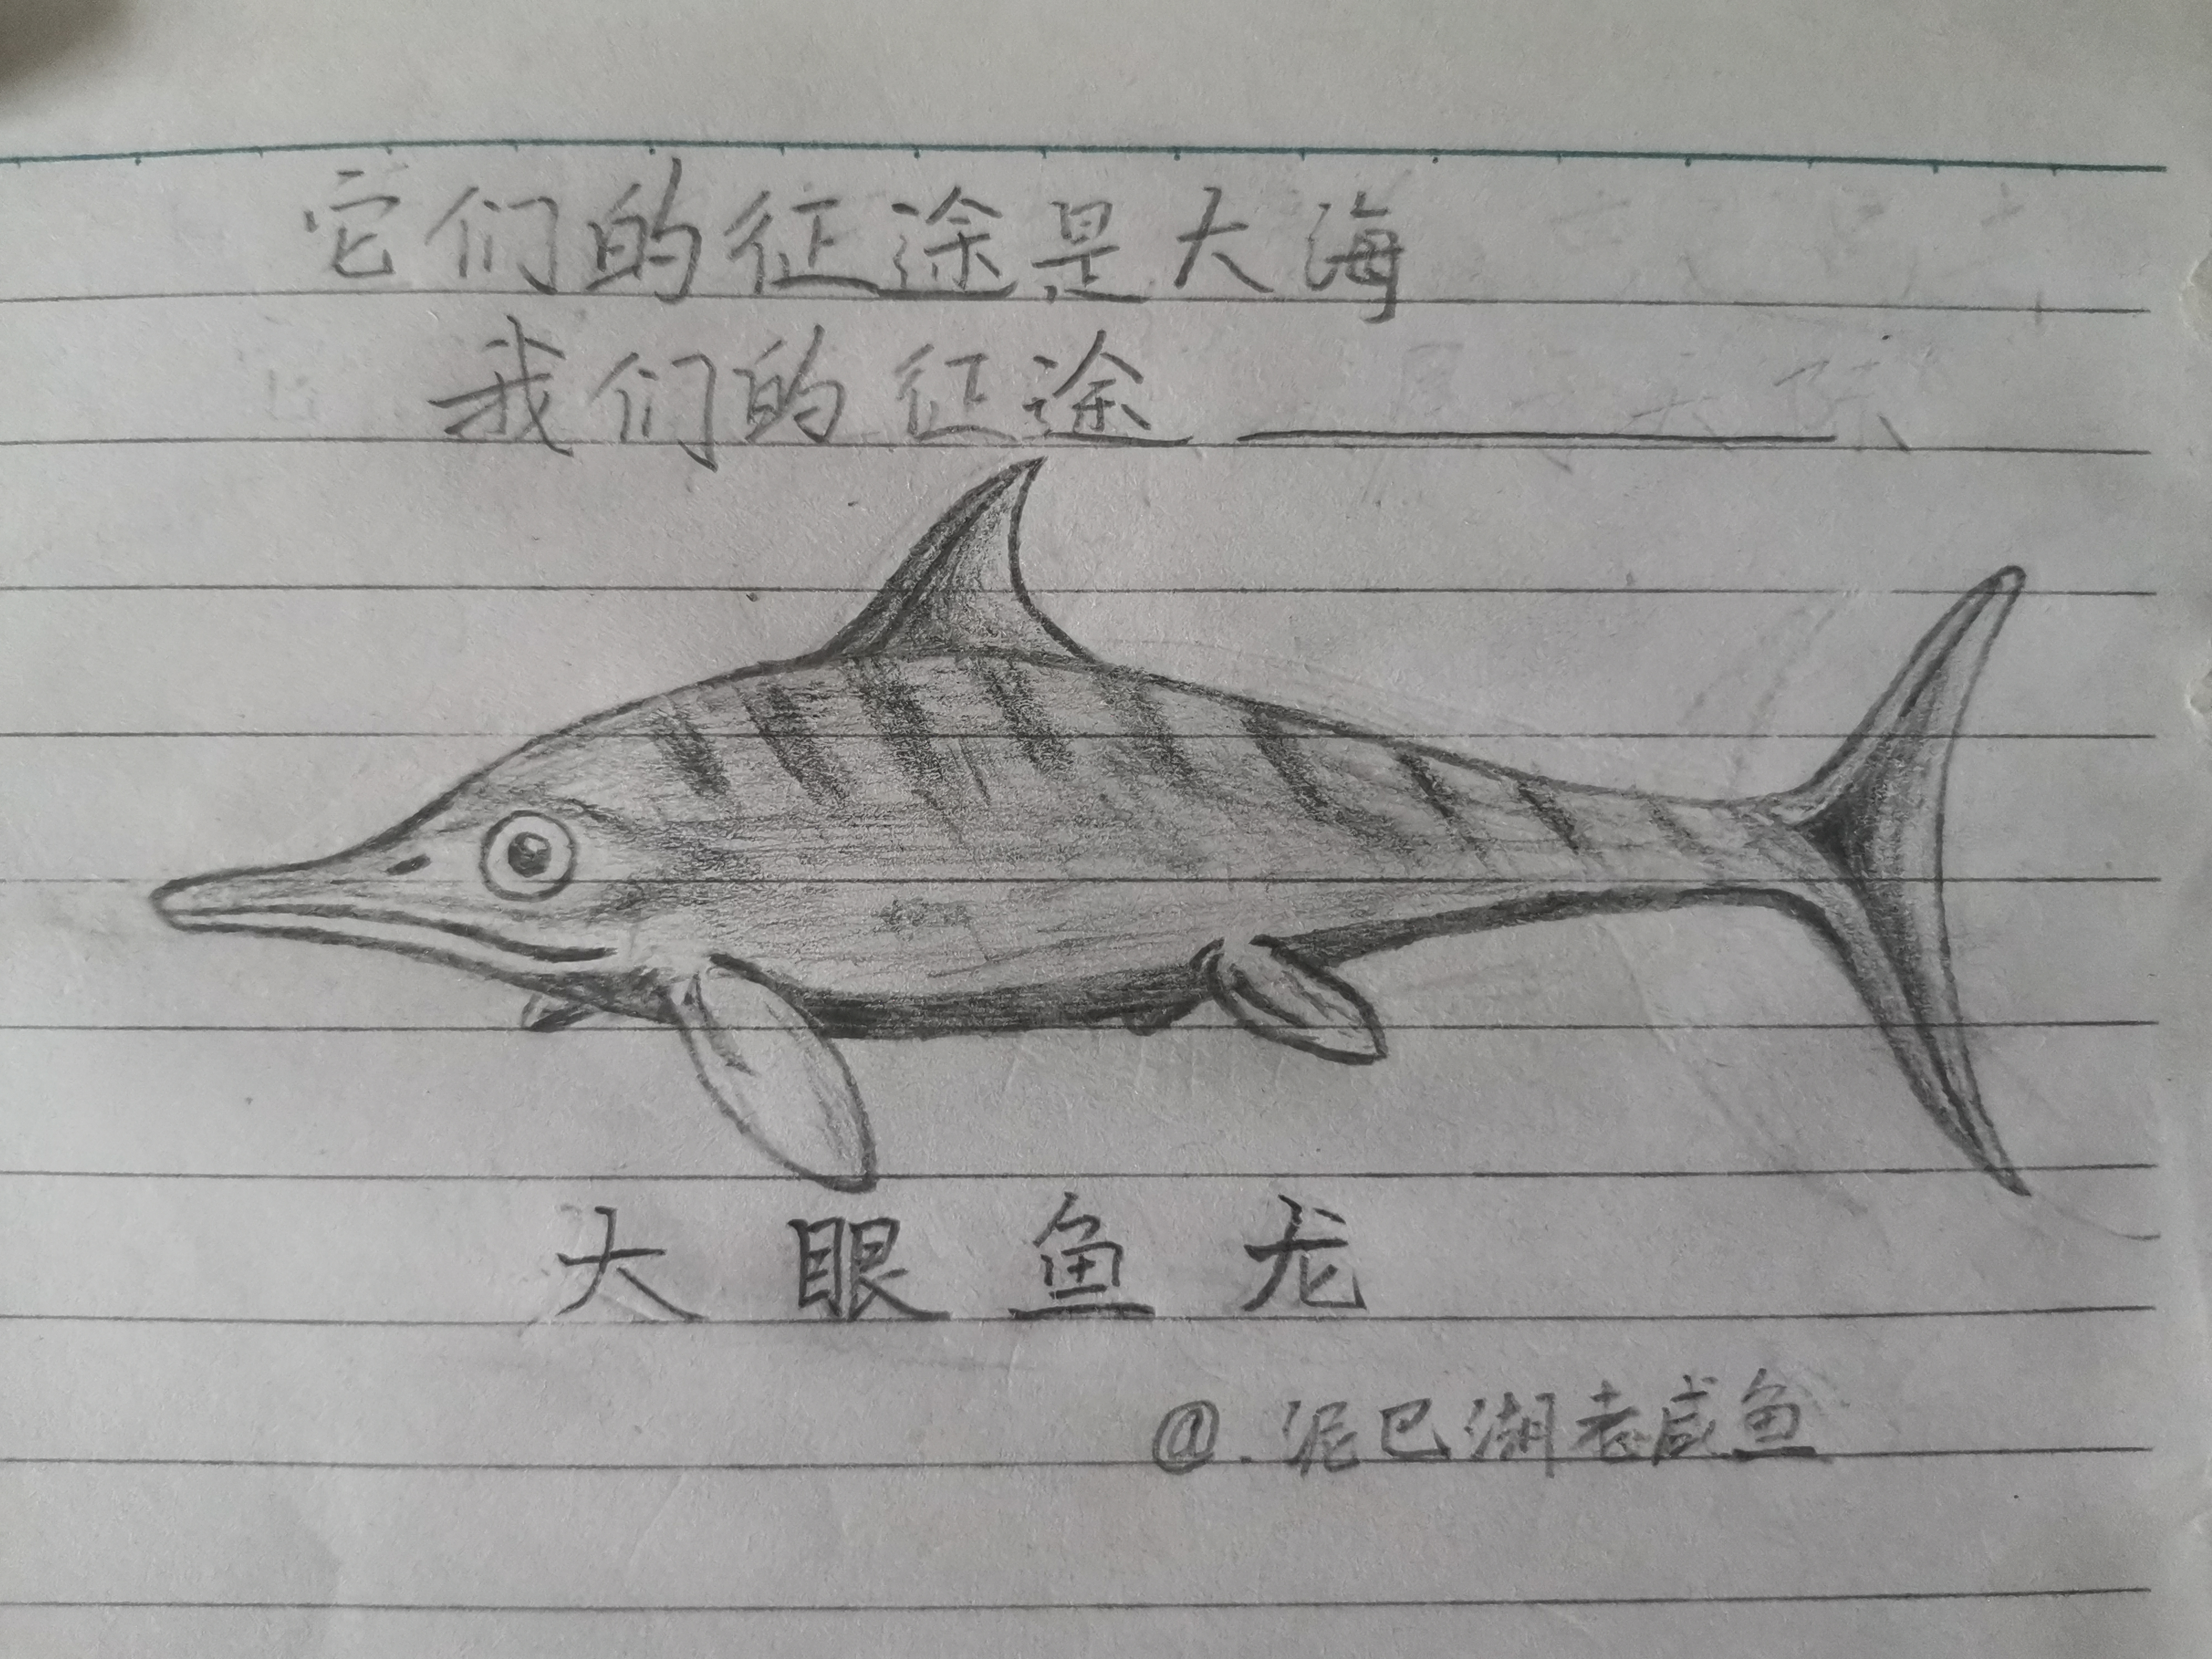 它们的征途是大海
我们的征途
大眼鱼龙
@.泥巴湖老咸鱼